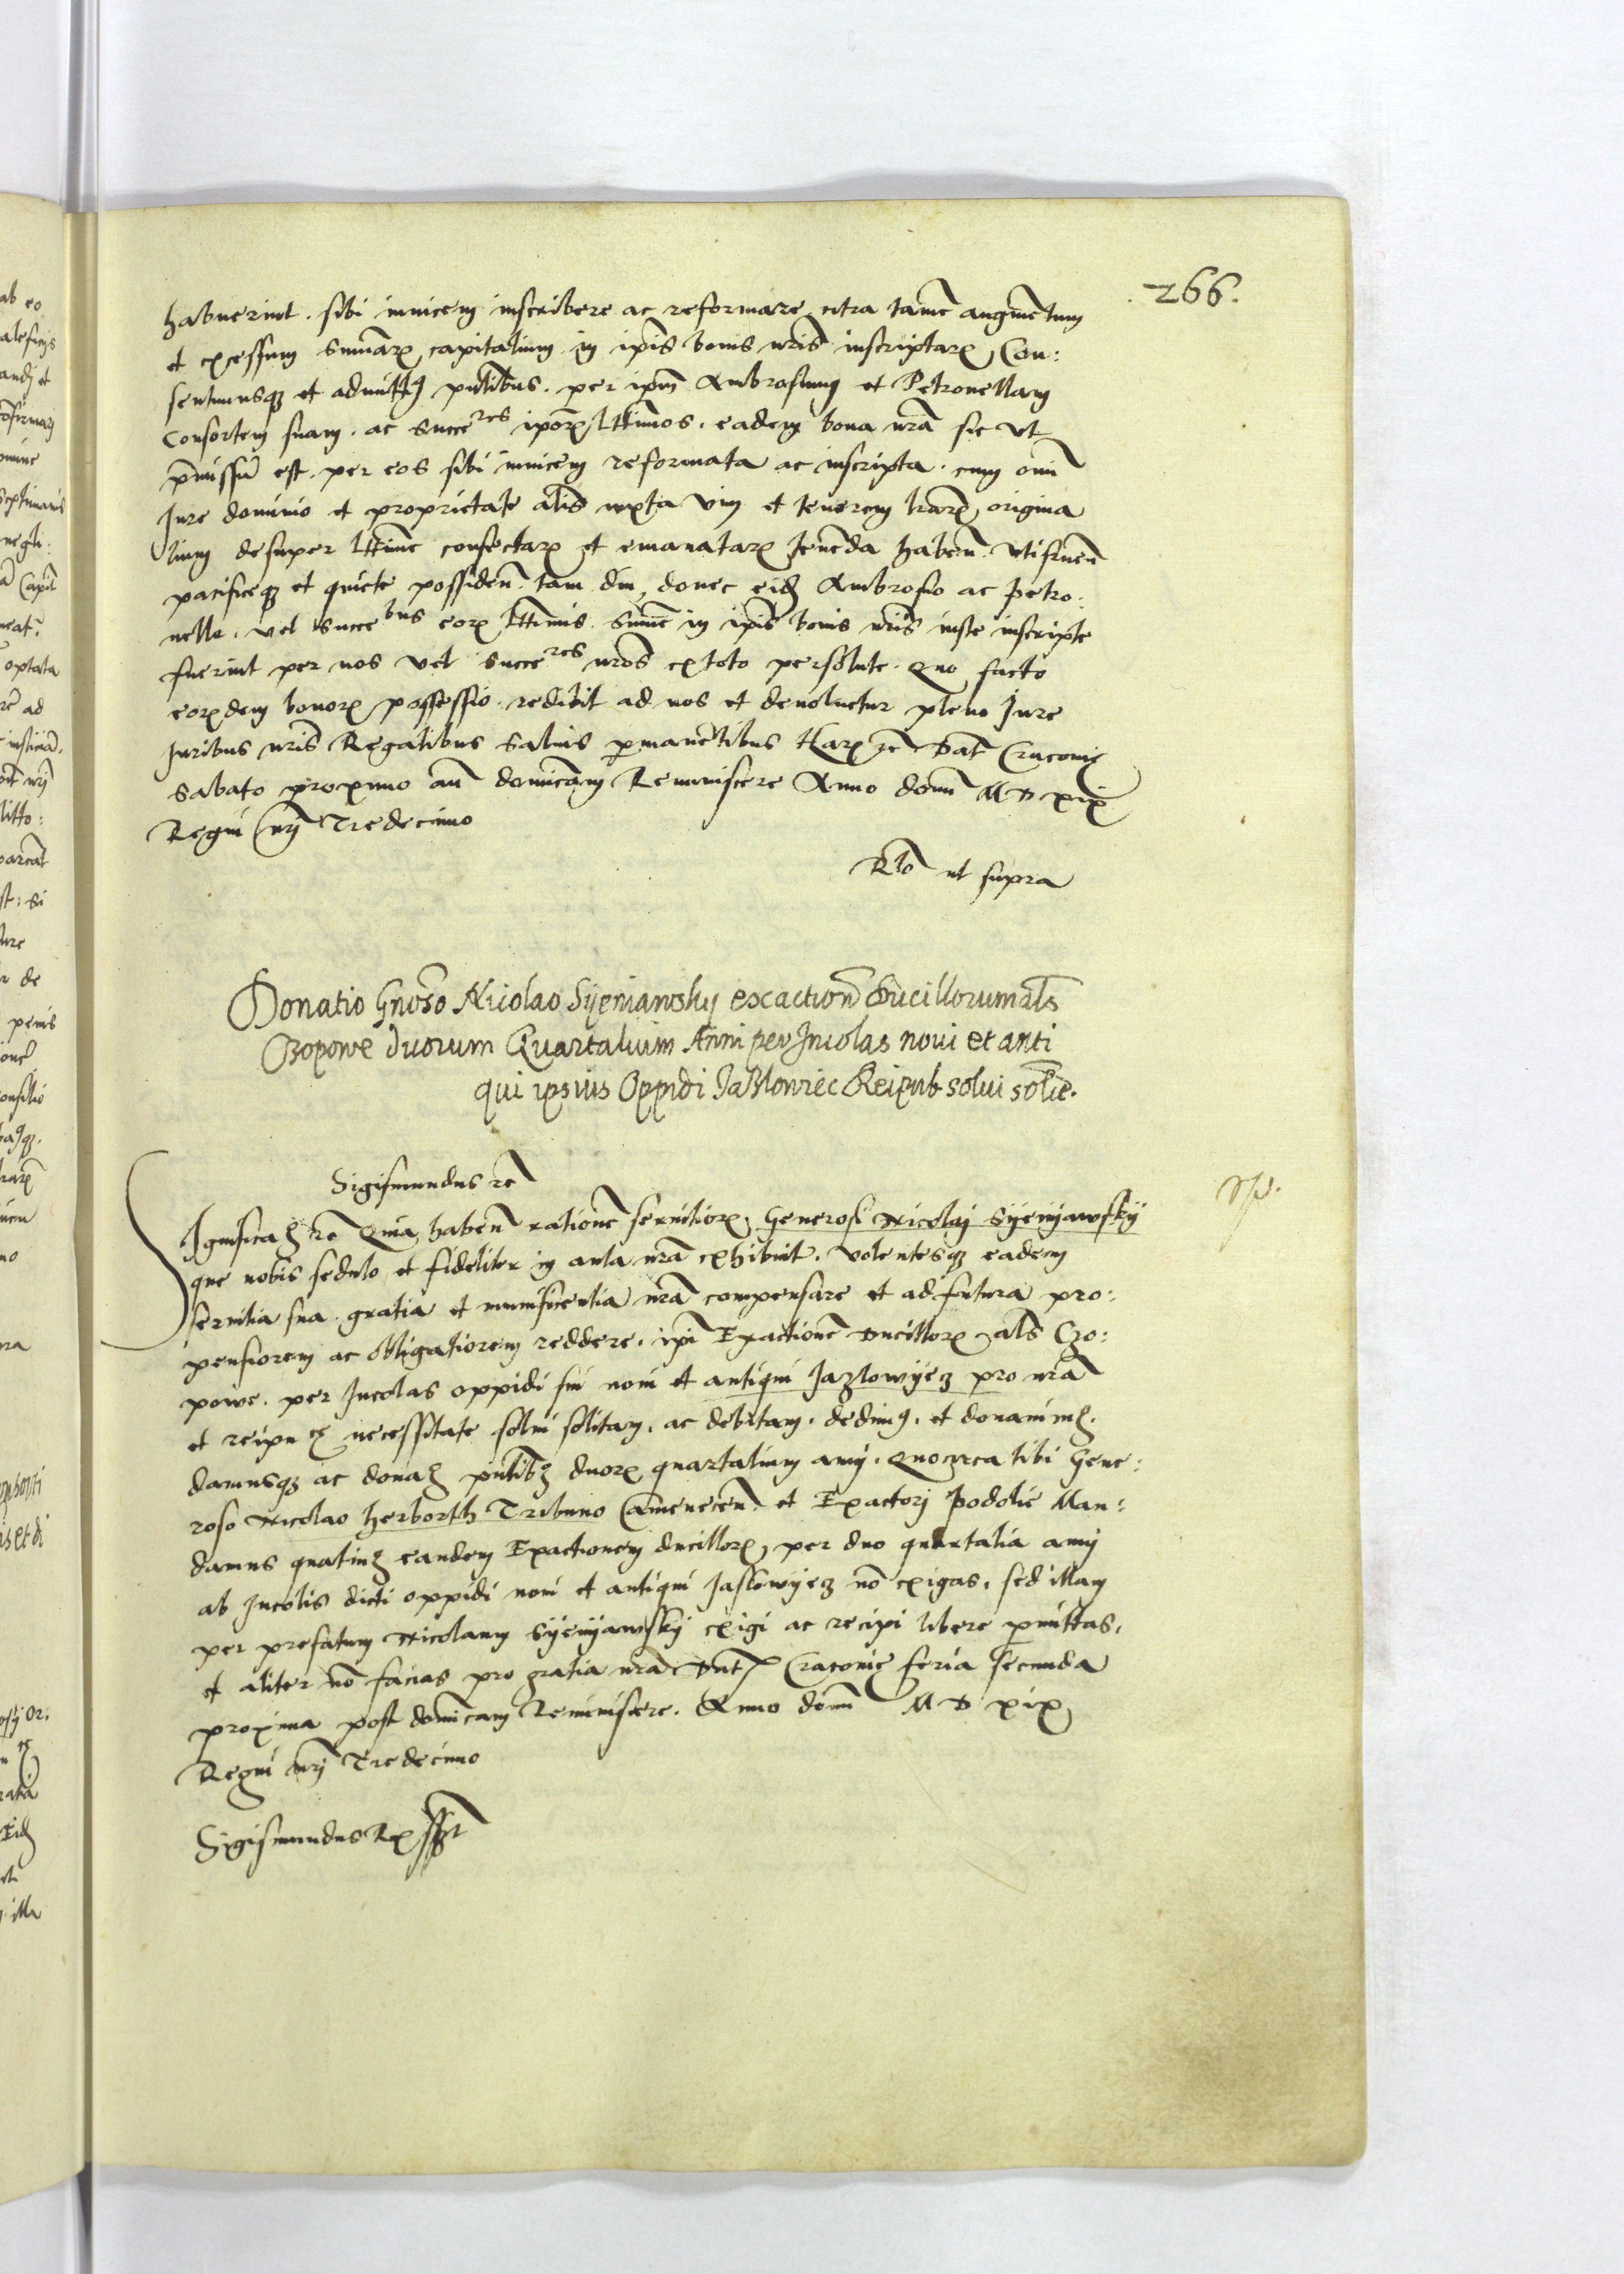 266.
habuerint. sibi inuicem inscribere ac reformare citra tamē augmētum
et excessum sūmarꝝ capitalium in ip̄is bonis nr̄is inscriptarꝝ, Con:
sentimusqꝫ et admittimꝰ pn̄tibus. per ip̄m Ambrosium et Petronellam
Consortem suam. ac succeres ip̄orꝝ lt̄timos. eadem bona nr̄a sic vt
p̄missū est. per eos sibi inuicem reformata ac inscripta. cum om̄i
Jure dominio et proprietate al̄s iuxta vim et tenorem lrārꝝ origina
lium desuper lt̄time confectarꝝ et emanatarꝝ tenēda haben̄. vtifruen̄
pacificeqꝫ et quiete possiden̄. tam diu, donec eidꝫ Ambrosio ac Petro:
nelle. vel succebus eorꝝ lt̄timis. sum̄e in ip̄is bonis nr̄is iuste inscripte
fuerint per nos vel succeres nr̄os ex toto persolute. Quo facto
eorꝝdem bonorꝝ possessio. redibit ad nos et deuoluetur pleno Jure
Juribus nr̄is Regalibus saluis ꝑmanētibus Harꝝ ꝛc̄ Dat̄ Cracouie
Sabato proximo an̄ domīcam Reminiscere Anno domī M D xix
Regni nr̄j Tredecimo
Rlō ut supra
Donatio Gnōso Nicolao Syeniawsky exactionē Ducillorum al̄s
Czopowe duorum Quartalium Anni per Incolas noui et anti
qui ipsius Oppidi Jazlowiec Reipub solui solitē.
Sigismundus ꝛc̄
Significamꝰ ꝛc̄ Quia haben̄ rationē seruitiorꝝ, Generosi Nicolaj Syenyawsky
que nobis sedulo et fideliter in aula nr̄a exhibuit. Volentesqꝫ eadem
seruitia sua gratia et munificentia nr̄a compensare et ad futura pro:
pensiorem ac obligatiorem reddere. ip̄i Exactionē Ducillorꝝ al̄s Czo:
powe. per Incolas oppidi sui noui et antiqui Jazlowyecz pro nr̄a
et reipu ce necessitate solui solitam. ac debitam. dedimꝰ. et donauimꝰ.
damusqꝫ ac donamꝰ pn̄tibꝰ duorꝝ quartalium annj. Quocirca tibi Gene:
roso Nicolao Herborth Tribuno Camenecen̄. et Exactorj Podolie Man:
damus quatinꝰ eandem Exactionem ducillorꝝ, per duo quartalia annj
ab Incolis dicti oppidi noui et antiqui Jaslowyecz nō exigas. sed illam
per prefatum Nicolaum Syenyawsky exigi ac recipi libere ꝑmittas.
et aliter nō facias pro gratia nr̄a. Dat̄ Cracouie feria secunda
proxima post domīcam Reminiscere. Anno domī M D xix
Regni nr̄j Tredecimo
Sigismundus Rex sst